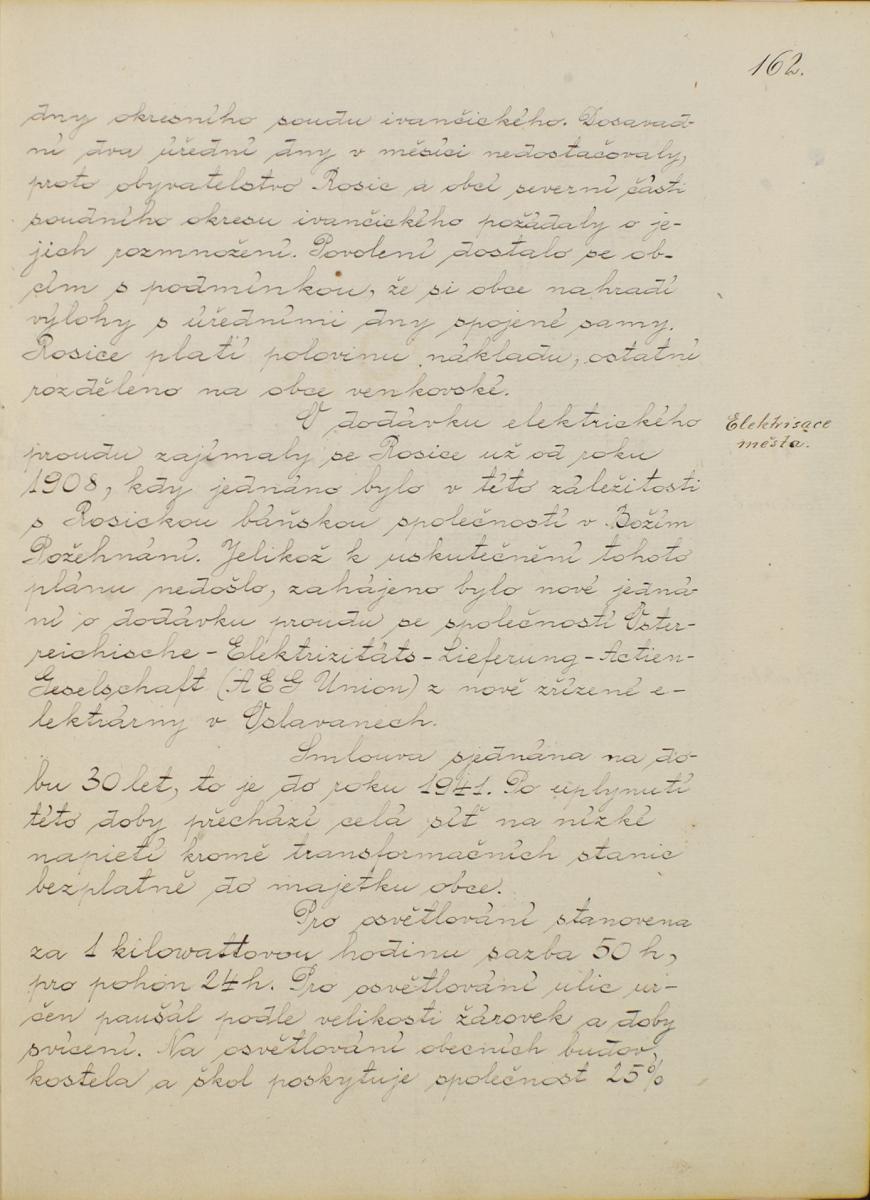 162.
dny okresního soudu ivančického. Dosavad-
ní dva úřední dny v měsíci nedostačovaly,
proto obyvatelstvo Rosic a obcí severní části
soudního okresu ivančického požádaly o je-
jich rozmnožení. Povolení dostalo se ob-
cím s podmínkou, že si obce nahradí
výlohy s úředními dny spojené samy.
Rosice platí polovinu nákladu, ostatní
rozděleno na obce venkovské.
O dodávku elektrického
Elektrisace
města.
proudu zajímaly se Rosice už od roku
1908, kdy jednáno bylo v této záležitosti
s Rosickou báňskou společností v Božím
Požehnání. Jelikož k uskutečnění tohoto
plánu nedošlo, zahájeno bylo nové jedná-
ní o dodávku proudu se společností Öster-
reichische - Elektrizitäts - Lieferung - Actien-
Geselschaft (AEG Union) z nově zřízené e-
lektrárny v Oslavanech.
Smlouva sjednána na do-
bu 30 let, to je do roku 1941. Po uplynutí
této doby přechází celá síť na nízké
napietí kromě transformačních stanic
bezplatně do majetku obce.
Pro osvětlování stanovena
za 1 kilowattovou hodinu sazba 50 h,
pro pohon 24 h. Pro osvětlování ulic ur-
čen paušál podle velikosti žárovek a doby
svícení. Na osvětlování obecních budov,
kostela a škol poskytuje společnost 25%